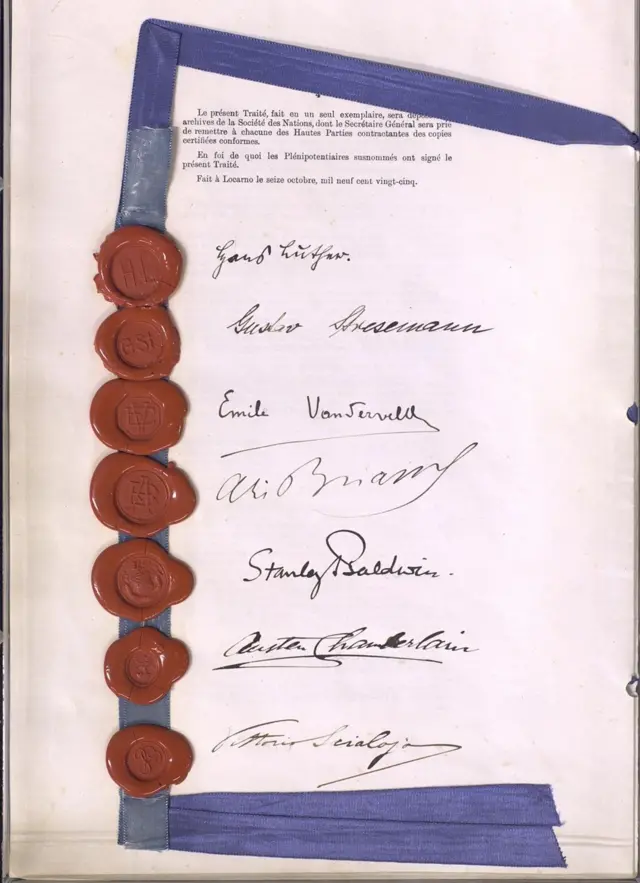 Le présent Traité, fait en un seul exemplaire, sera
archives de la Société des Nations, dont le Secrétaire Général sera prié
de remettre à chacune des Hautes Parties contractantes des copies
certifiées conformes.
En foi de quoi les Plénipotentiaires susnommés ont signé le
présent Traité.
Fait à Locarno le seize octobre, mil neuf cent vingt-cinq.
H.L.
Hans Luther.
G.St.
Gustav Stresemann
Emile Vandervelde
Ari Briand
Stanley Baldwin.
Austen Chamberlain
Vittorio Scialoja